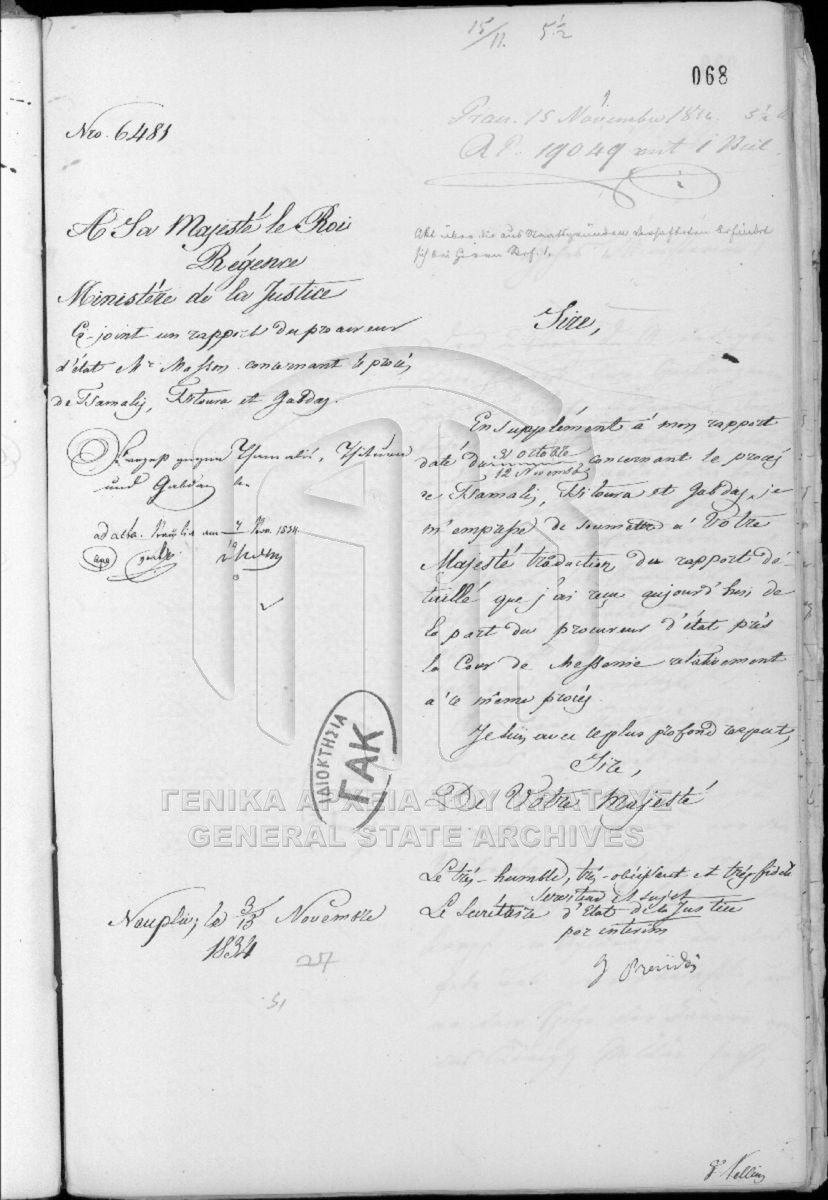 15/11. 5 1/2
068
Nro. 6481
Praes. 15 Novembre 1834. 5 1/2
AP. 19049 mit 1 Beil.
A Sa Majesté le Roi
Régence
Ministère de la Justice
Ci-joint un rapport du procureur
d'état Mr Masson concernant le procès
de Tzamalis, Tzitoura et Gabdas.
Akt über die aus Staatsgründen Verhafteten befindet
sich bei Herrn
Prozess gegen Thamalis, Tsitura
und Gabdas
ad acta. Nauplia am Nov. 1834.
Sire,
En supplément à mon rapport
daté du 31 Octobre / 12 Novembre concernant le procès
de Tzamalis, Tzitoura et Gabdas, je
m'empresse de soumettre à Votre
Majesté traduction du rapport dé-
taillé que j'ai reçu aujourd'hui de
la part du procureur d'état près
la Cour de Messenie relativement
à ce même procès.
Je suis avec le plus profond respect,
Sire,
De Votre Majesté
Le très-humble, très-obéissant et très-fidèle
Serviteur et sujet
Le Secrétaire d'Etat de la Justice
par intérim
Nauplie, le 3/15 Novembre
1834
27
ΙΔΙΟΚΤΗΣΙΑ
ΓΑΚ
ΓΕΝΙΚΑ ΑΡΧΕΙΑ ΤΟΥ ΚΡΑΤΟΥΣ
GENERAL STATE ARCHIVES